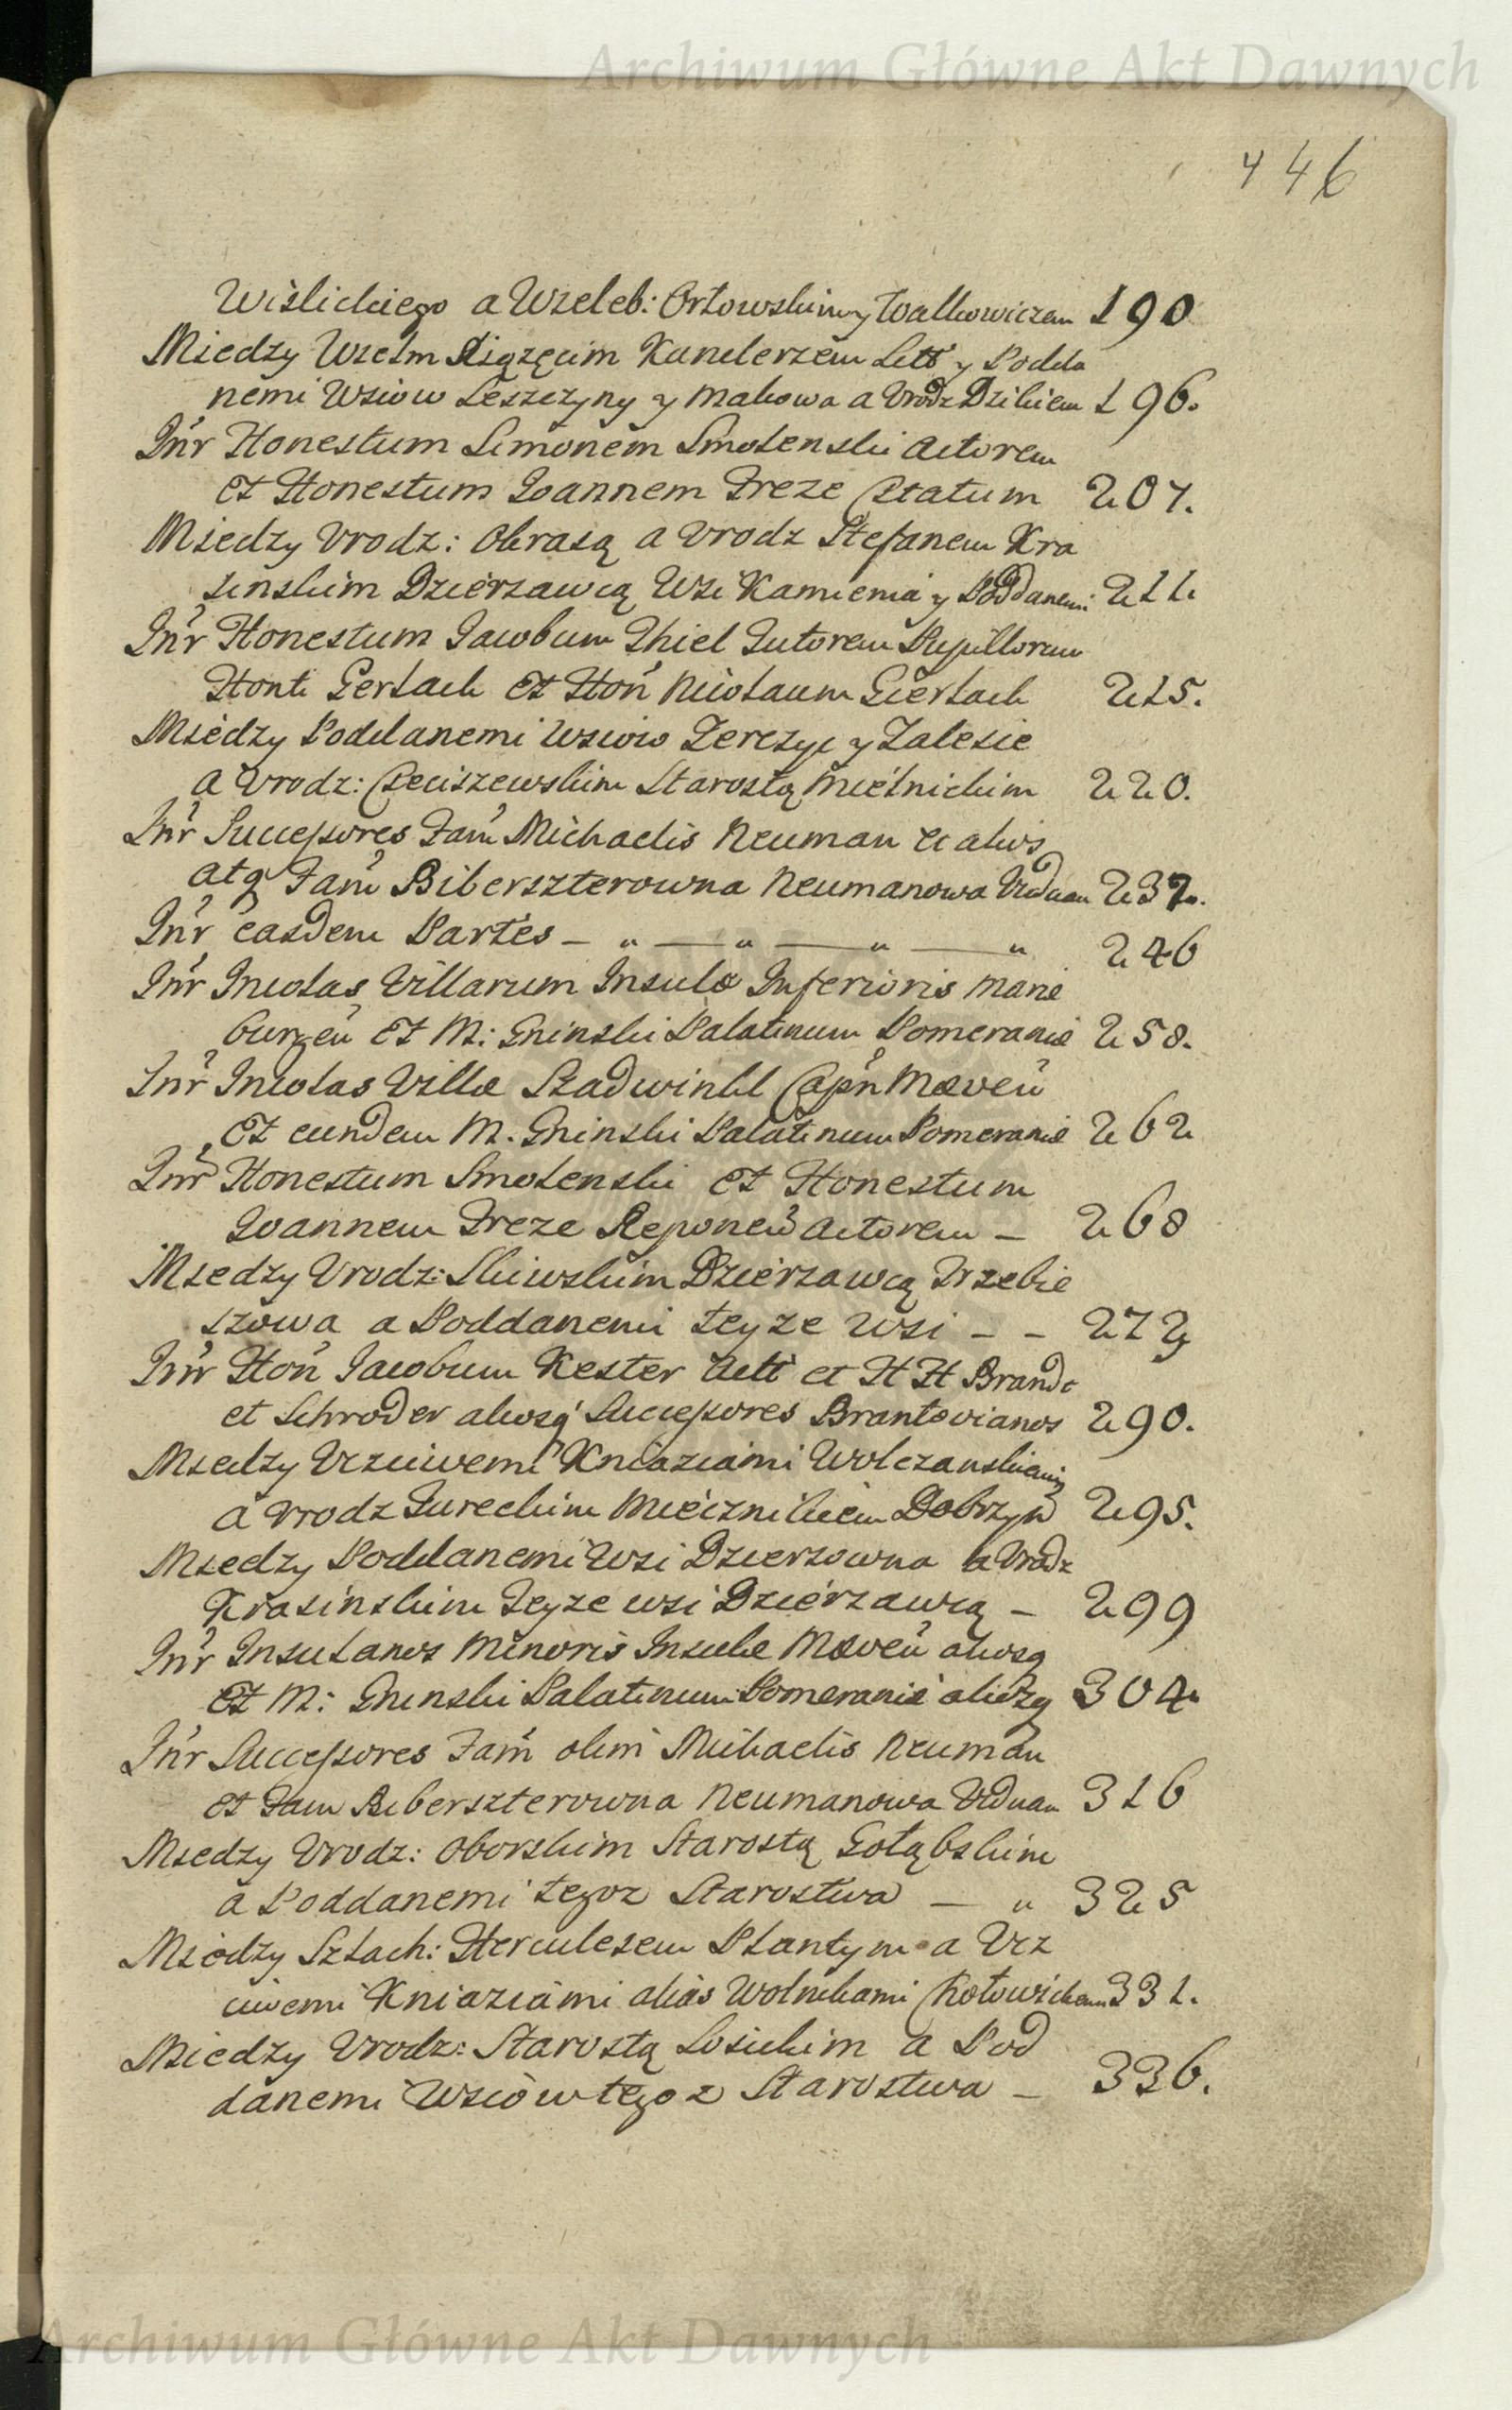 Archiwum Główne Akt Dawnych
446
Wislickiego a Wieleb: Orłowskim y Walkowiczem 190
Miedzy Wielm Xiązęcim Kanclerzem Litt y Podda
nemi Wsiow Leszczyny y Makowa a Vrodz Dzikiem 196.
Int̃r Honestum Simonem Smolenski Actorem
et Honestum Joannem Treze Citatum 207.
Miedzy Vrodz: Okrasą a Vrodz Stefanem Kra
sinskim Dzierzawcą Wsi Kamienia y Poddanemi 211.
Int̃r Honestum Jacobum Thiel Tutorem Pupillorum
Honti Gerlach et Hon Nicolaum Gierlach 215.
Miedzy Poddanemi Wsiow Zerczyc y Zalesie
a Vrodz: Cieciszewskim Starostą Mielnickim 220.
Int̃r Successores Fam̃ Michaelis Neuman et alios
atq Fam̃ Biberszterowna Neumanowa Viduam 237.
Int̃r easdem Partes – „ — „ — „ — „ 246
Int̃r Incolas Villarum Insulæ Inferioris Marie
burgeñ et M: Gninski Palatinum Pomeraniæ 258.
Int̃r Incolas Villæ Szadwinkl Capñ Mæveñ
et eundem M. Gninski Palatinum Pomeraniæ 262
Int̃r Honestum Smolenski et Honestum
Joannem Treze Reponeñ Actorem – 268
Miedzy Vrodz: Sliwskim Dzierzawcą Trzebie
szowa a Poddanemi teyze Wsi – – 272
Int̃r Hon Jacobum Kester Actt et HH Brandt
et Schroder aliosq Successores Brantovianos 290.
Miedzy Vczciwemi Kniaziami Wolczanskiemi
a Vrodz Tureckim Miecznikiem Dobrzyñ 295.
Miedzy Poddanemi Wsi Dzierzowna a Vrodz
Krasinskim Teyze wsi Dzierzawcą – 299
Int̃r Insulanos Minoris Insulæ Mæveñ aliosq
et M: Gninski Palatinum Pomeraniæ aliosq 304.
Int̃r Successores Fam̃ olim Michaelis Neuman
et Fam Biberszterowna Neumanowa Viduam 316
Miedzy Vrodz: Oborskim Starostą Gołąbskim
a Poddanemi tegoz Starostwa — „ 325
Miedzy Szlach: Herculesem Plantym a Vcz
ciwemi Kniaziami alias Wolnikami Chotowickiemi 331.
Miedzy Vrodz: Starostą Losickim a Pod
danemi Wsiów tegoz Starostwa – 336.
Archiwum Główne Akt Dawnych